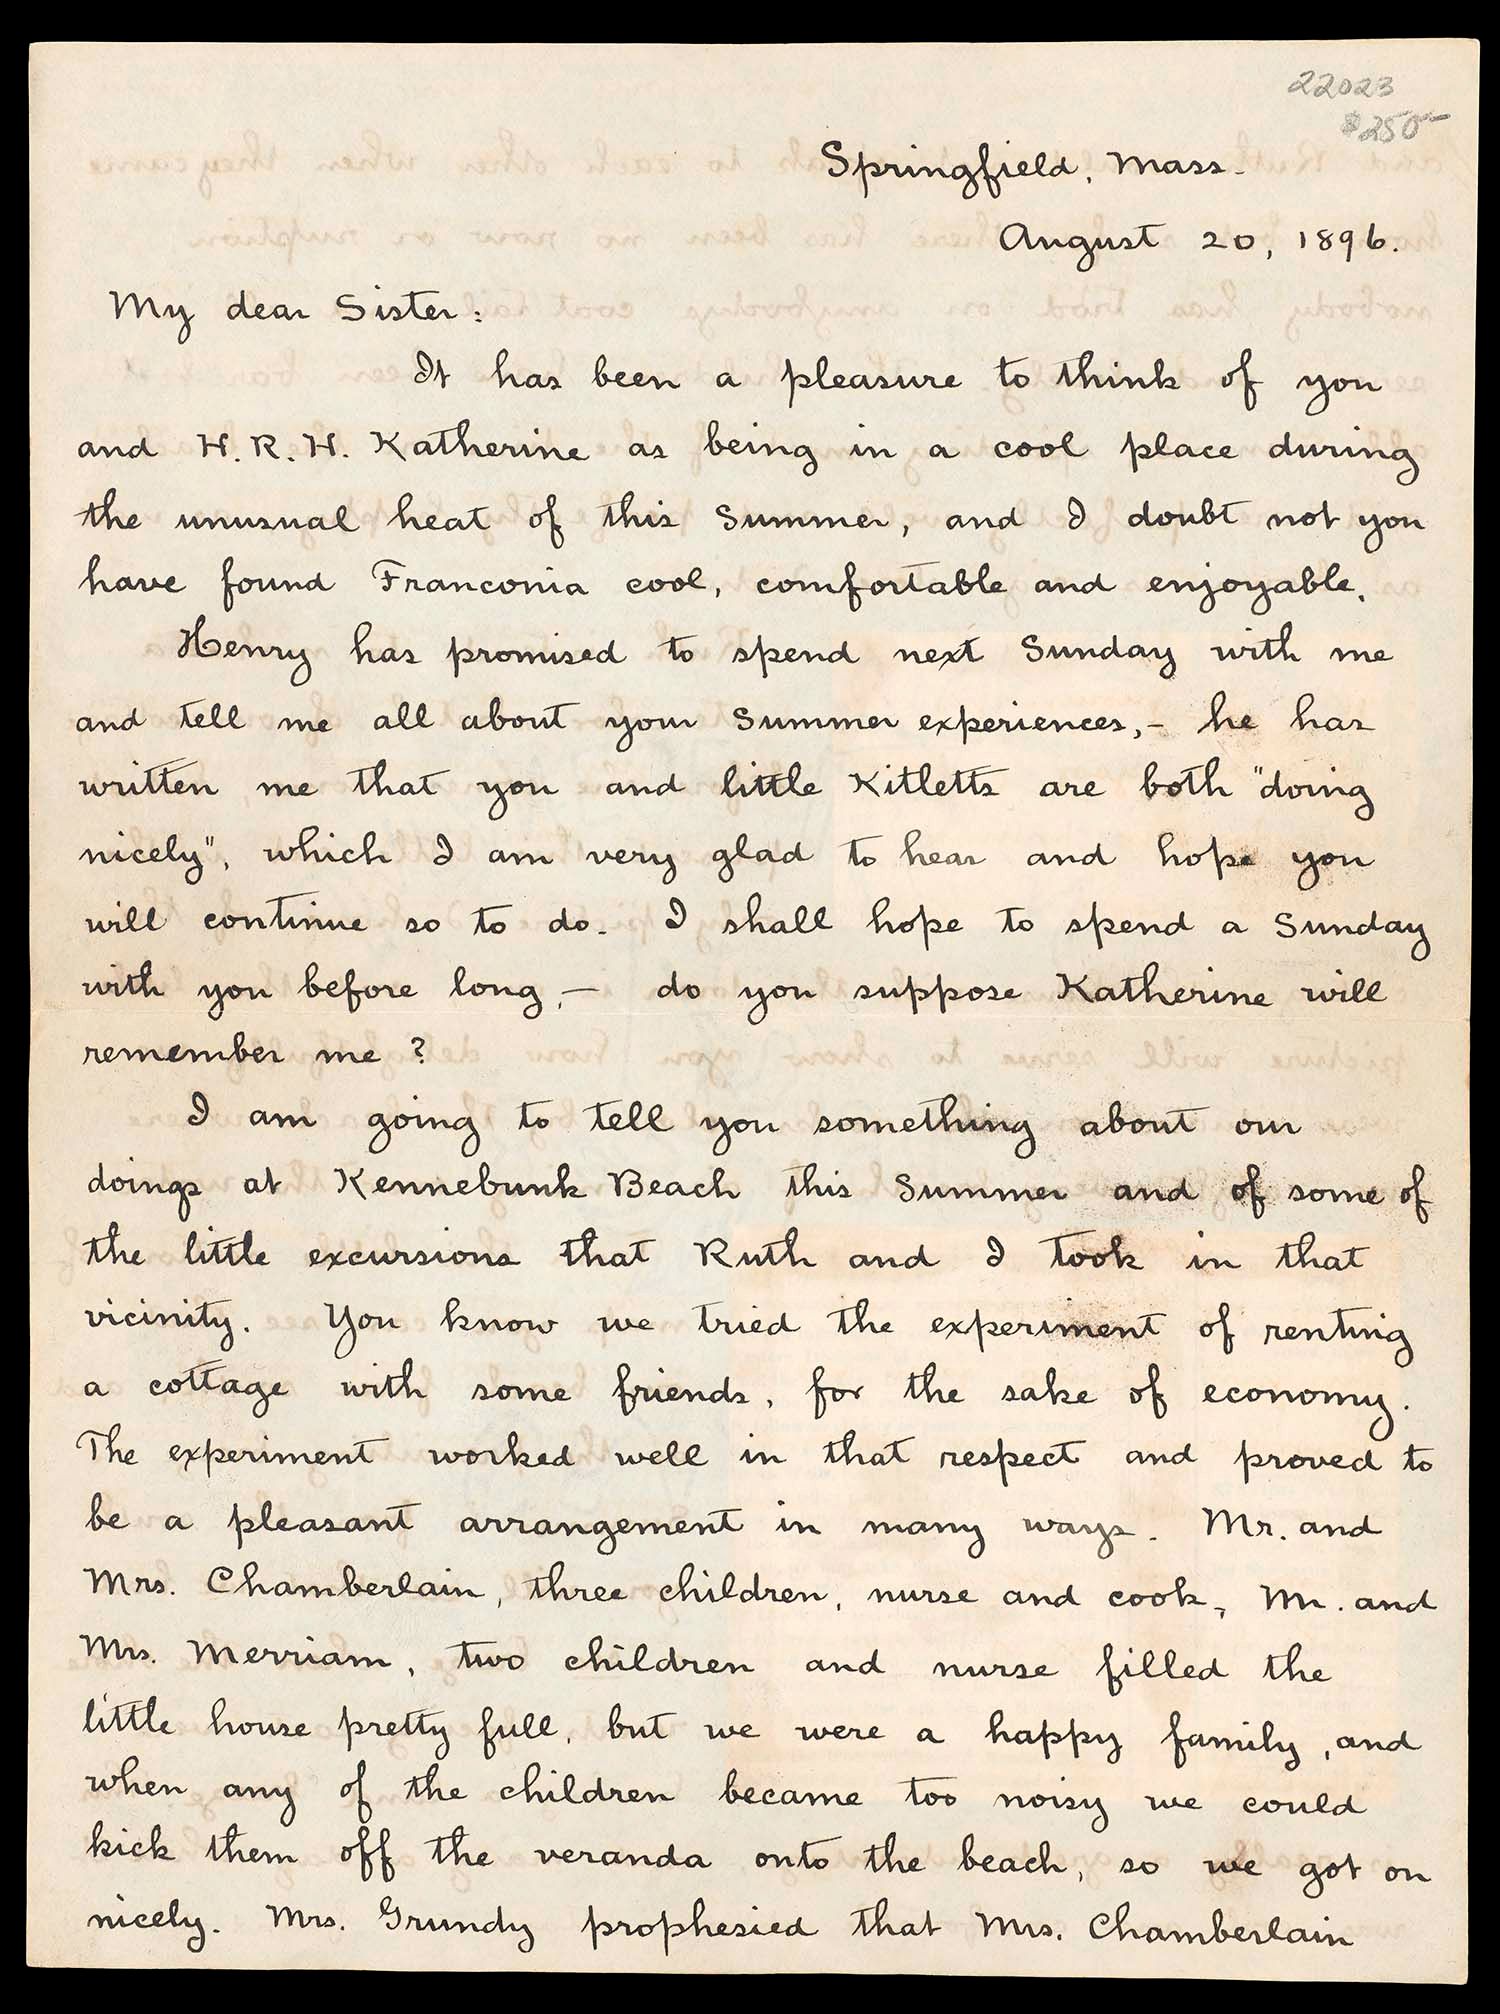 22023
$250-
Springfield, Mass.
August 20, 1896.
My dear Sister:
It has been a pleasure to think of you
and H.R.H. Katherine as being in a cool place during
the unusual heat of this Summer, and I doubt not you
have found Franconia cool, comfortable and enjoyable.
Henry has promised to spend next Sunday with me
and tell me all about your Summer experiences,- he has
written me that you and little Kitletts are both "doing
nicely", which I am very glad to hear and hope you
will continue so to do. I shall hope to spend a Sunday
with you before long,- do you suppose Katherine will
remember me?
I am going to tell you something about our
doings at Kennebunk Beach this Summer and of some of
the little excursions that Ruth and I took in that
vicinity. You know we tried the experiment of renting
a cottage with some friends, for the sake of economy.
The experiment worked well in that respect and proved to
be a pleasant arrangement in many ways. Mr. and
Mrs. Chamberlain, three children, nurse and cook, Mr. and
Mrs. Merriam, two children and nurse filled the
little house pretty full, but we were a happy family, and
when any of the children became too noisy we could
kick them off the veranda onto the beach, so we got on
nicely. Mrs. Grundy prophesied that Mrs. Chamberlain